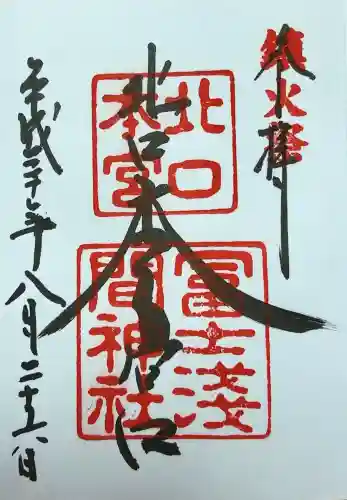 鎮火祭
奉拝
北口本宮
北口
本宮
冨士浅
間神社
平成三十年八月二十六日